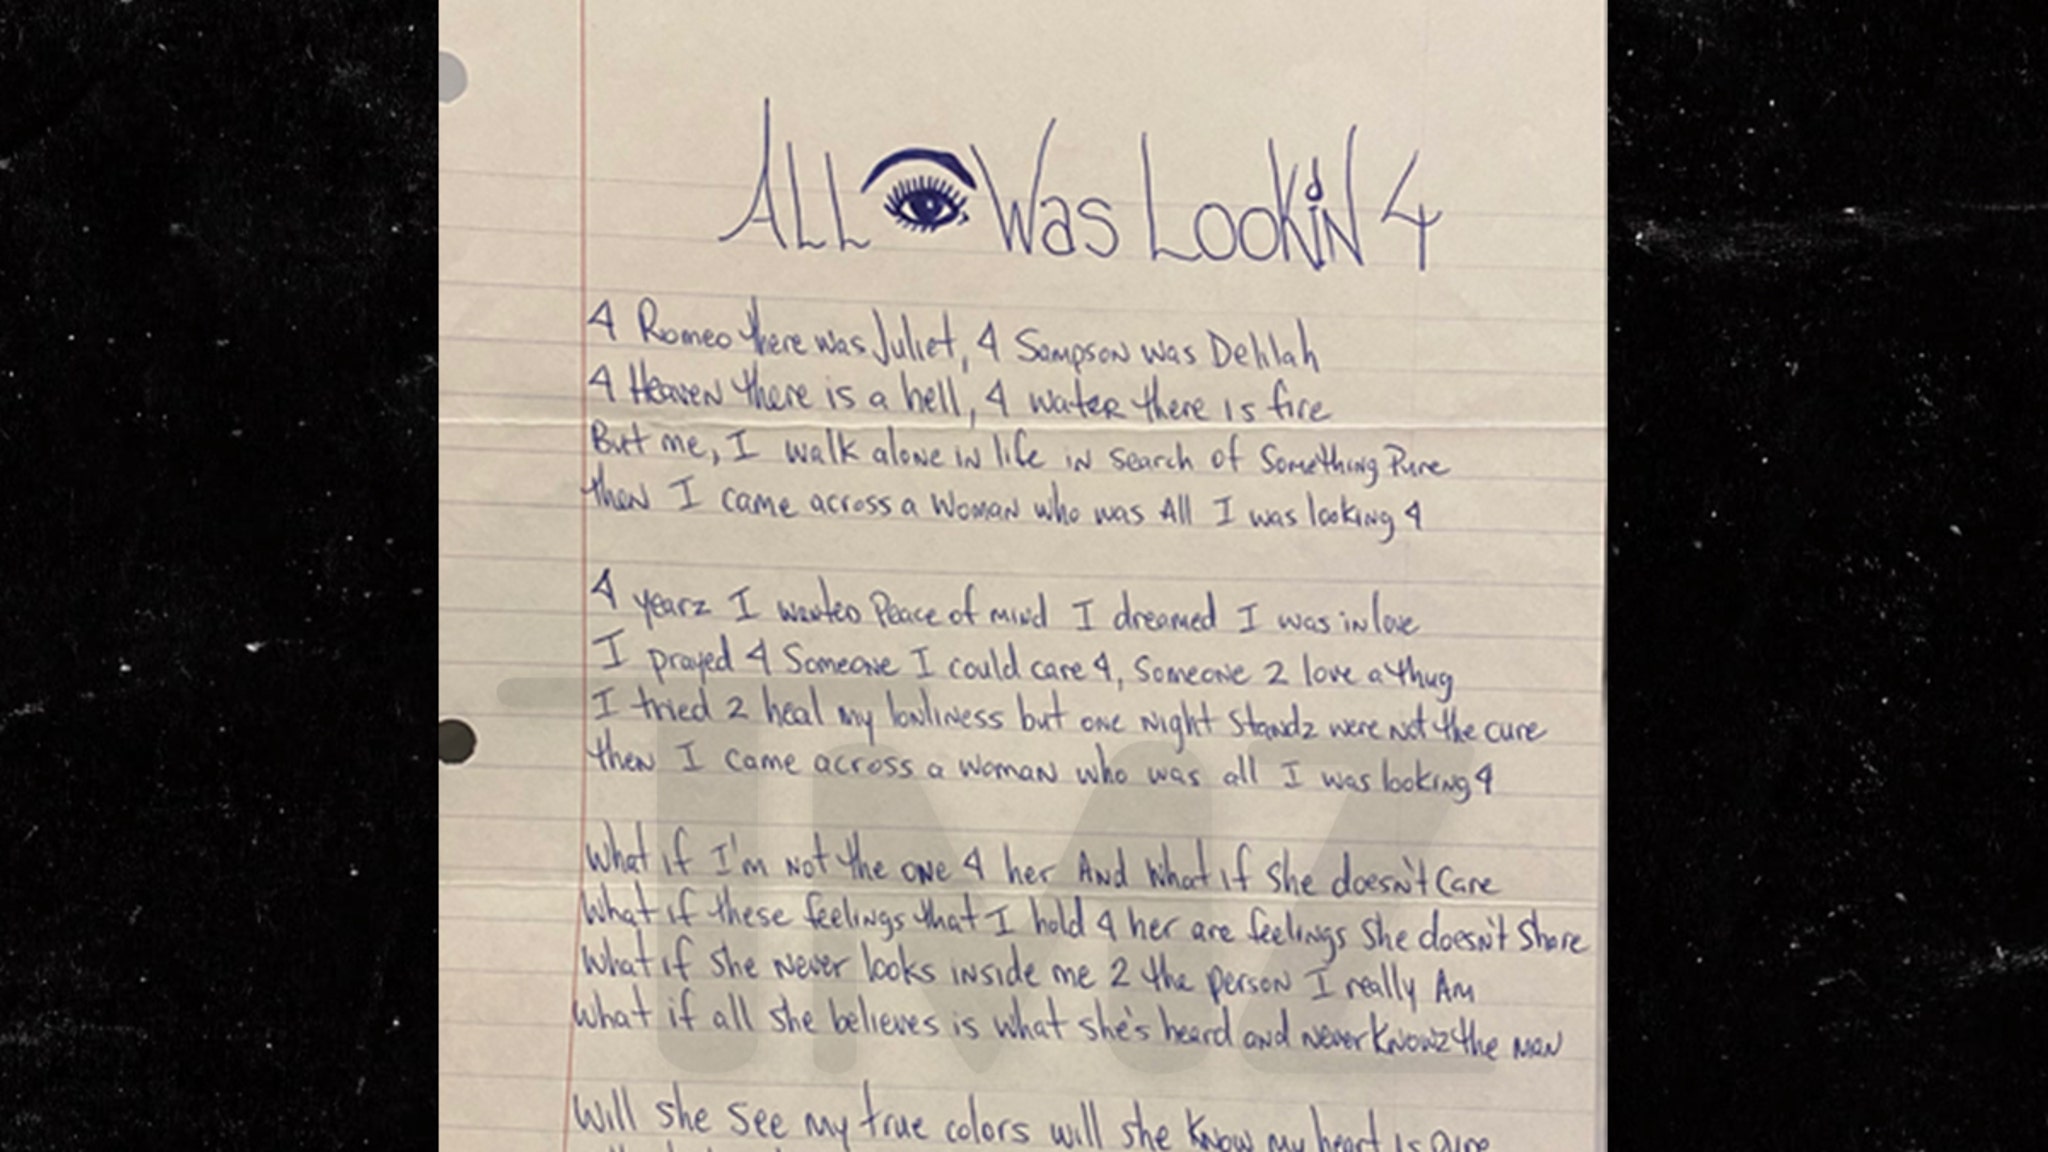 ALL 👁 Was LookiN 4
4 Romeo there was Juliet, 4 Sampson was Delilah
4 Heaven there is a hell, 4 water there is fire
But me, I walk alone in life in search of Something Pure
then I came across a Woman who was All I was looking 4
4 yearz I wanted Peace of mind I dreamed I was in love
I prayed 4 Someone I could care 4, Someone 2 love a thug
I tried 2 heal my lonliness but one night Standz were not the cure
then I came across a woman who was all I was looking 4
What if I'm not the one 4 her And What if She doesn't Care
What if these feelings that I hold 4 her are feelings She doesn't Share
What if She Never looks inside me 2 the person I really Am
What if all She believes is what she's heard and never Knowz the man
Will she See my true colors will she Know my heart is pure
TMZ